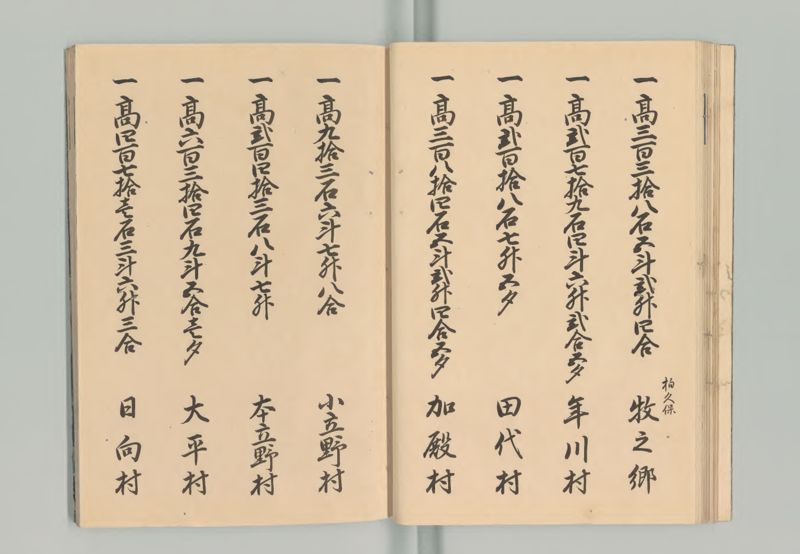 一高三百三拾八石五斗弐升四合 牧之郷
柏久保
一高弐百七拾九石四斗六升弐合五夕 年川村
一高弐百拾八石七升五夕 田代村
一高三百八拾四石五斗弐升四合五夕 加殿村
一高九拾三石六斗七升八合 小立野村
一高弐百四拾三石八斗七升 本立野村
一高六百三拾四石九斗五合壱夕 大平村
一高四百七拾壱石三斗六升三合 日向村